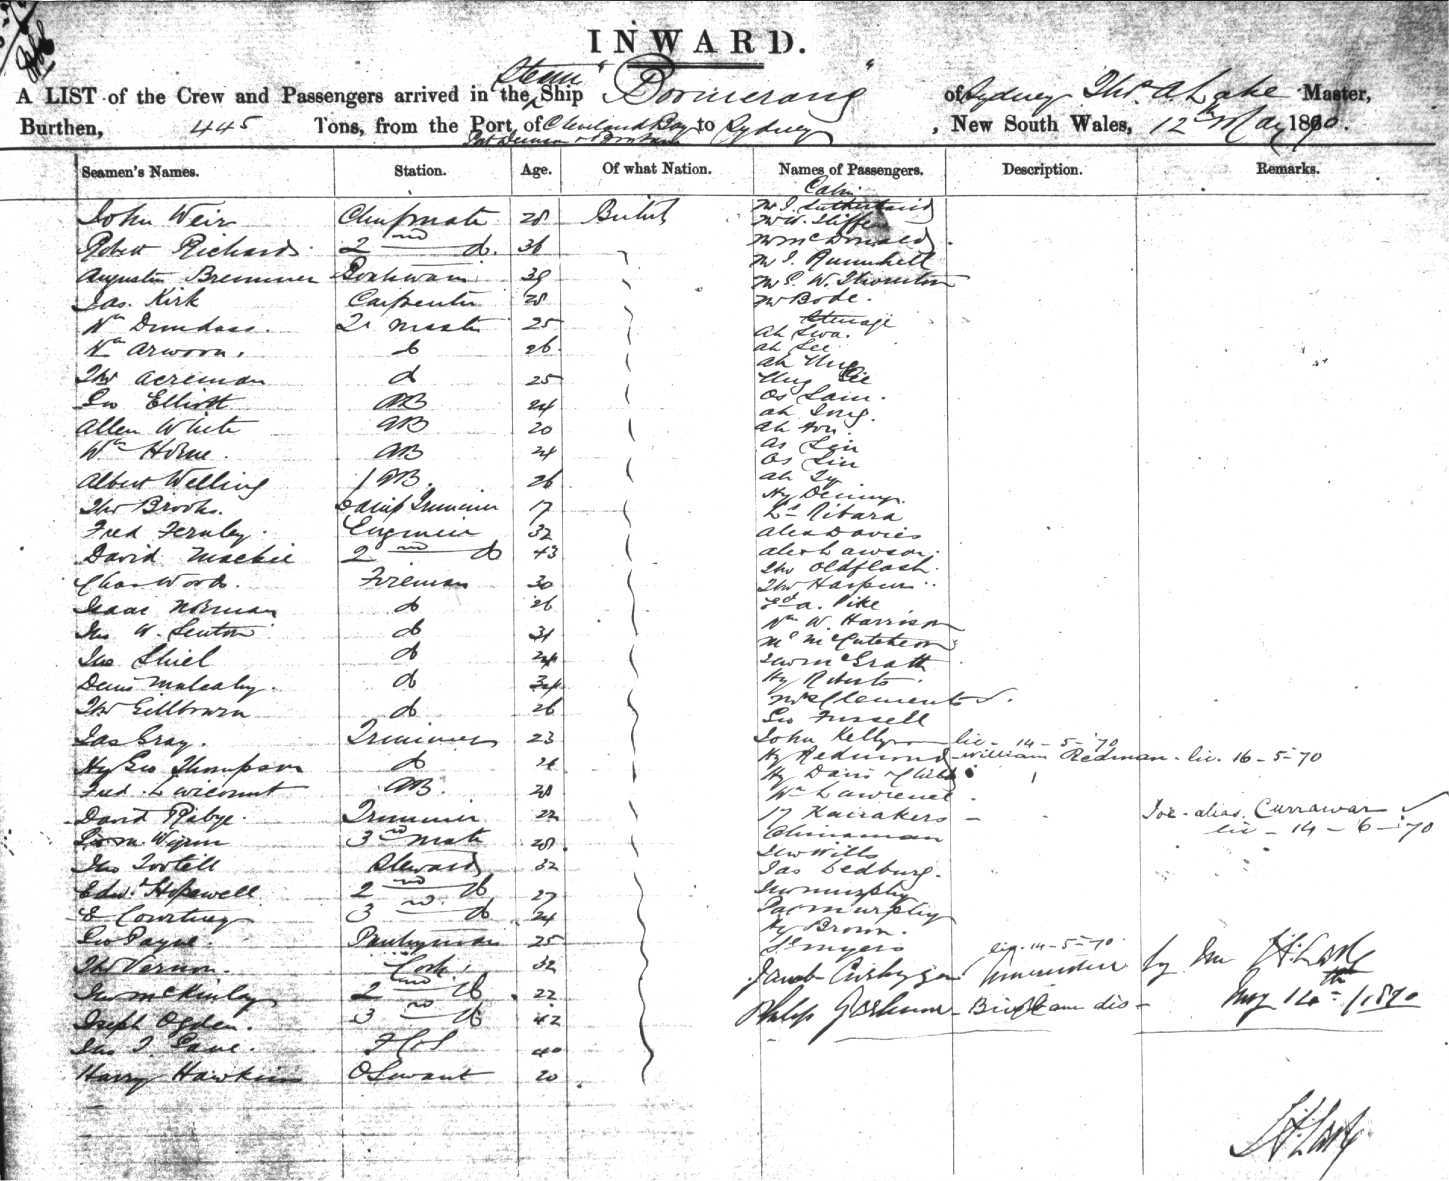 INWARD.
A LIST of the Crew and Passengers arrived in the Steam Ship "Boomerang" of Sydney, Thos. A. Lake Master,
Burthen, 445 Tons, from the Port of Cleveland Bay to Sydney, New South Wales, 12th May 1870.
Seamen's Names. Station. Age. Of what Nation. Names of Passengers. Description. Remarks.
Cabin
John Weir Chief mate 28 British Mr J. Sutherland
Mr W. Iliffe
Robert Richards 2nd do. 36 Mr McDonald
Mr J. Rumnhell
Augustin Bremner Boatswain 39 Mr E. W. Thornton
Jas. Kirk Carpenter 28 Mr Bode.
Steerage
Wm Dundass. 25 Ah Swa.
Wm Arwoon. do 26 Ah See
Ah Ung
Thos Acreman do 25 Ung Gee
Geo Elliott AB 24 Os Sam.
Ah Song.
Allen White AB 20 Ah Hon.
Wm Horne. AB 24 As Lin
Os Lin
Albert Welling AB. 26 Ah Ty
Hy Denny.
Thos Brooks. Lamp Trimmer 17 Ls Ribara
Fred Fernley. Engineer 32 Alex Davies
David Mackie 2nd do 43 Alex Lawson.
Thos Oldflash.
Chas Woods. Fireman 30 Thos Harpur.
Isaac Norman do 26 Ed A. Pike
Jno W. Senton do 31 Wm W. Harrison
Mc McCutcheon
Jno Shiel do 24 Thos McGrath
Denis Mulcahy. do 34 Hy Roberts.
Thos Gillbrown do 26 Mrs Clements
Geo Fussell
Jas Gray. Trimmer 23 John Kelly lic - 14-5-70
Hy Geo Thompson do 24 Hy Redmond William Redman - lic. 16-5-70
Hy Davis & Child
Fred. Larcomut AB. 28 Wm Lawrence
David Rabye. Trimmer 22 17 Kanakers - Joe - alias. Currawar
lic - 14-6-70
Geo M Wynn 3rd mate 28. Chinaman
Jno Wills
Jno Tootell Steward 32 Jas Ledbury.
Edwd. Hopewell 2nd do 27 Jno Murphy
E Courtney 3rd do 24 Jas Murphy
Hy Brown.
Geo Payne. Pantryman 25 Ss Myers lic. 14-5-70.
Thos Vernon. Cook 32 Jacob
Jno McKinley 2nd do 22 May 12th 1870
Joseph Ogden. 3rd do 42 Philip
Jno T. Pane. 40
Harry Hawkins O Servant 20